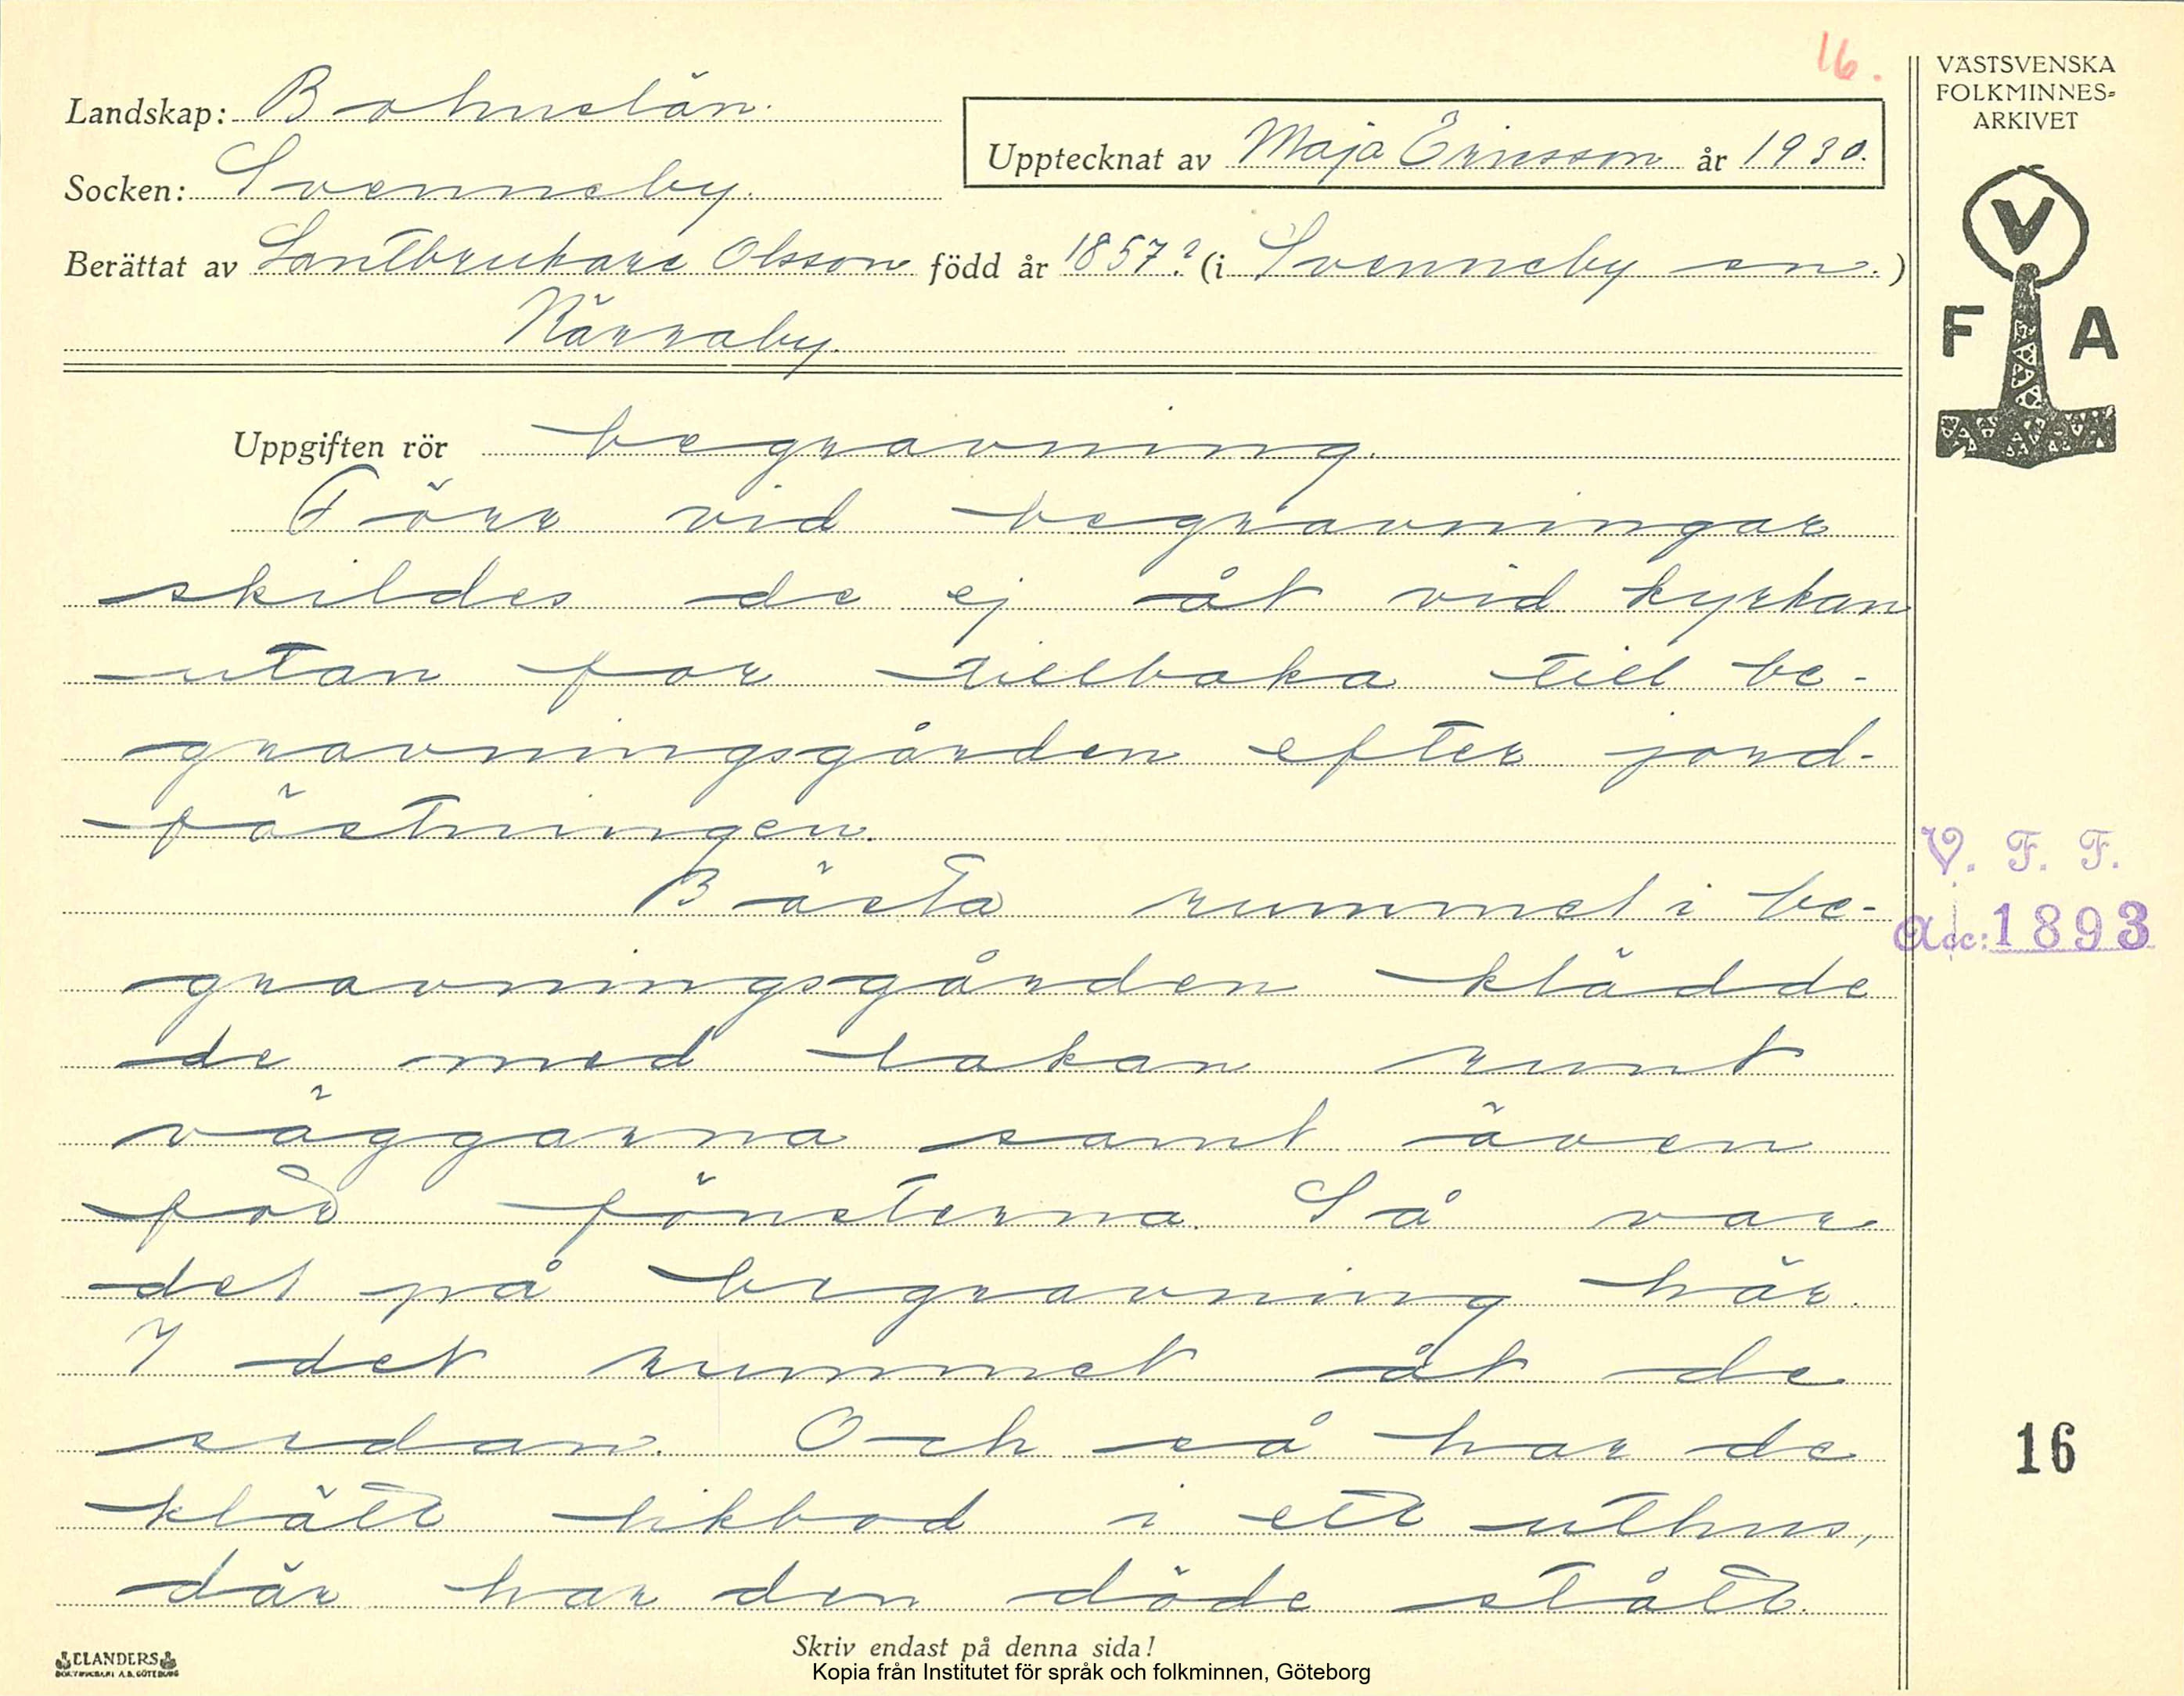 16.
Landskap: Bohuslän.
Upptecknat av Maja Ericsson år 1930.
Socken: Svenneby.
Berättat av Lantbrukare Olsson född år 1857? (i Svenneby sn.)
Kärraby.
Uppgiften rör begravning.
Förr vid begravningar
skildes de ej åt vid kyrkan
utan for tillbaka till be-
gravningsgården efter jord-
fästningen.
Bästa rummet i be-
gravningsgården klädde
de med lakan runt
väggarna samt även
för fönsterna. Så var
det på begravning här.
I det rummet åt de
sedan. Och så har de
klätt likbod i ett uthus,
där har den döde stått.
Skriv endast på denna sida!
Kopia från Institutet för språk och folkminnen, Göteborg
ELANDERS
BOKTRYCKERI A.B. GÖTEBORG
VÄSTSVENSKA
FOLKMINNES=
ARKIVET
V
F A
V. F. F.
Acc: 1893
16